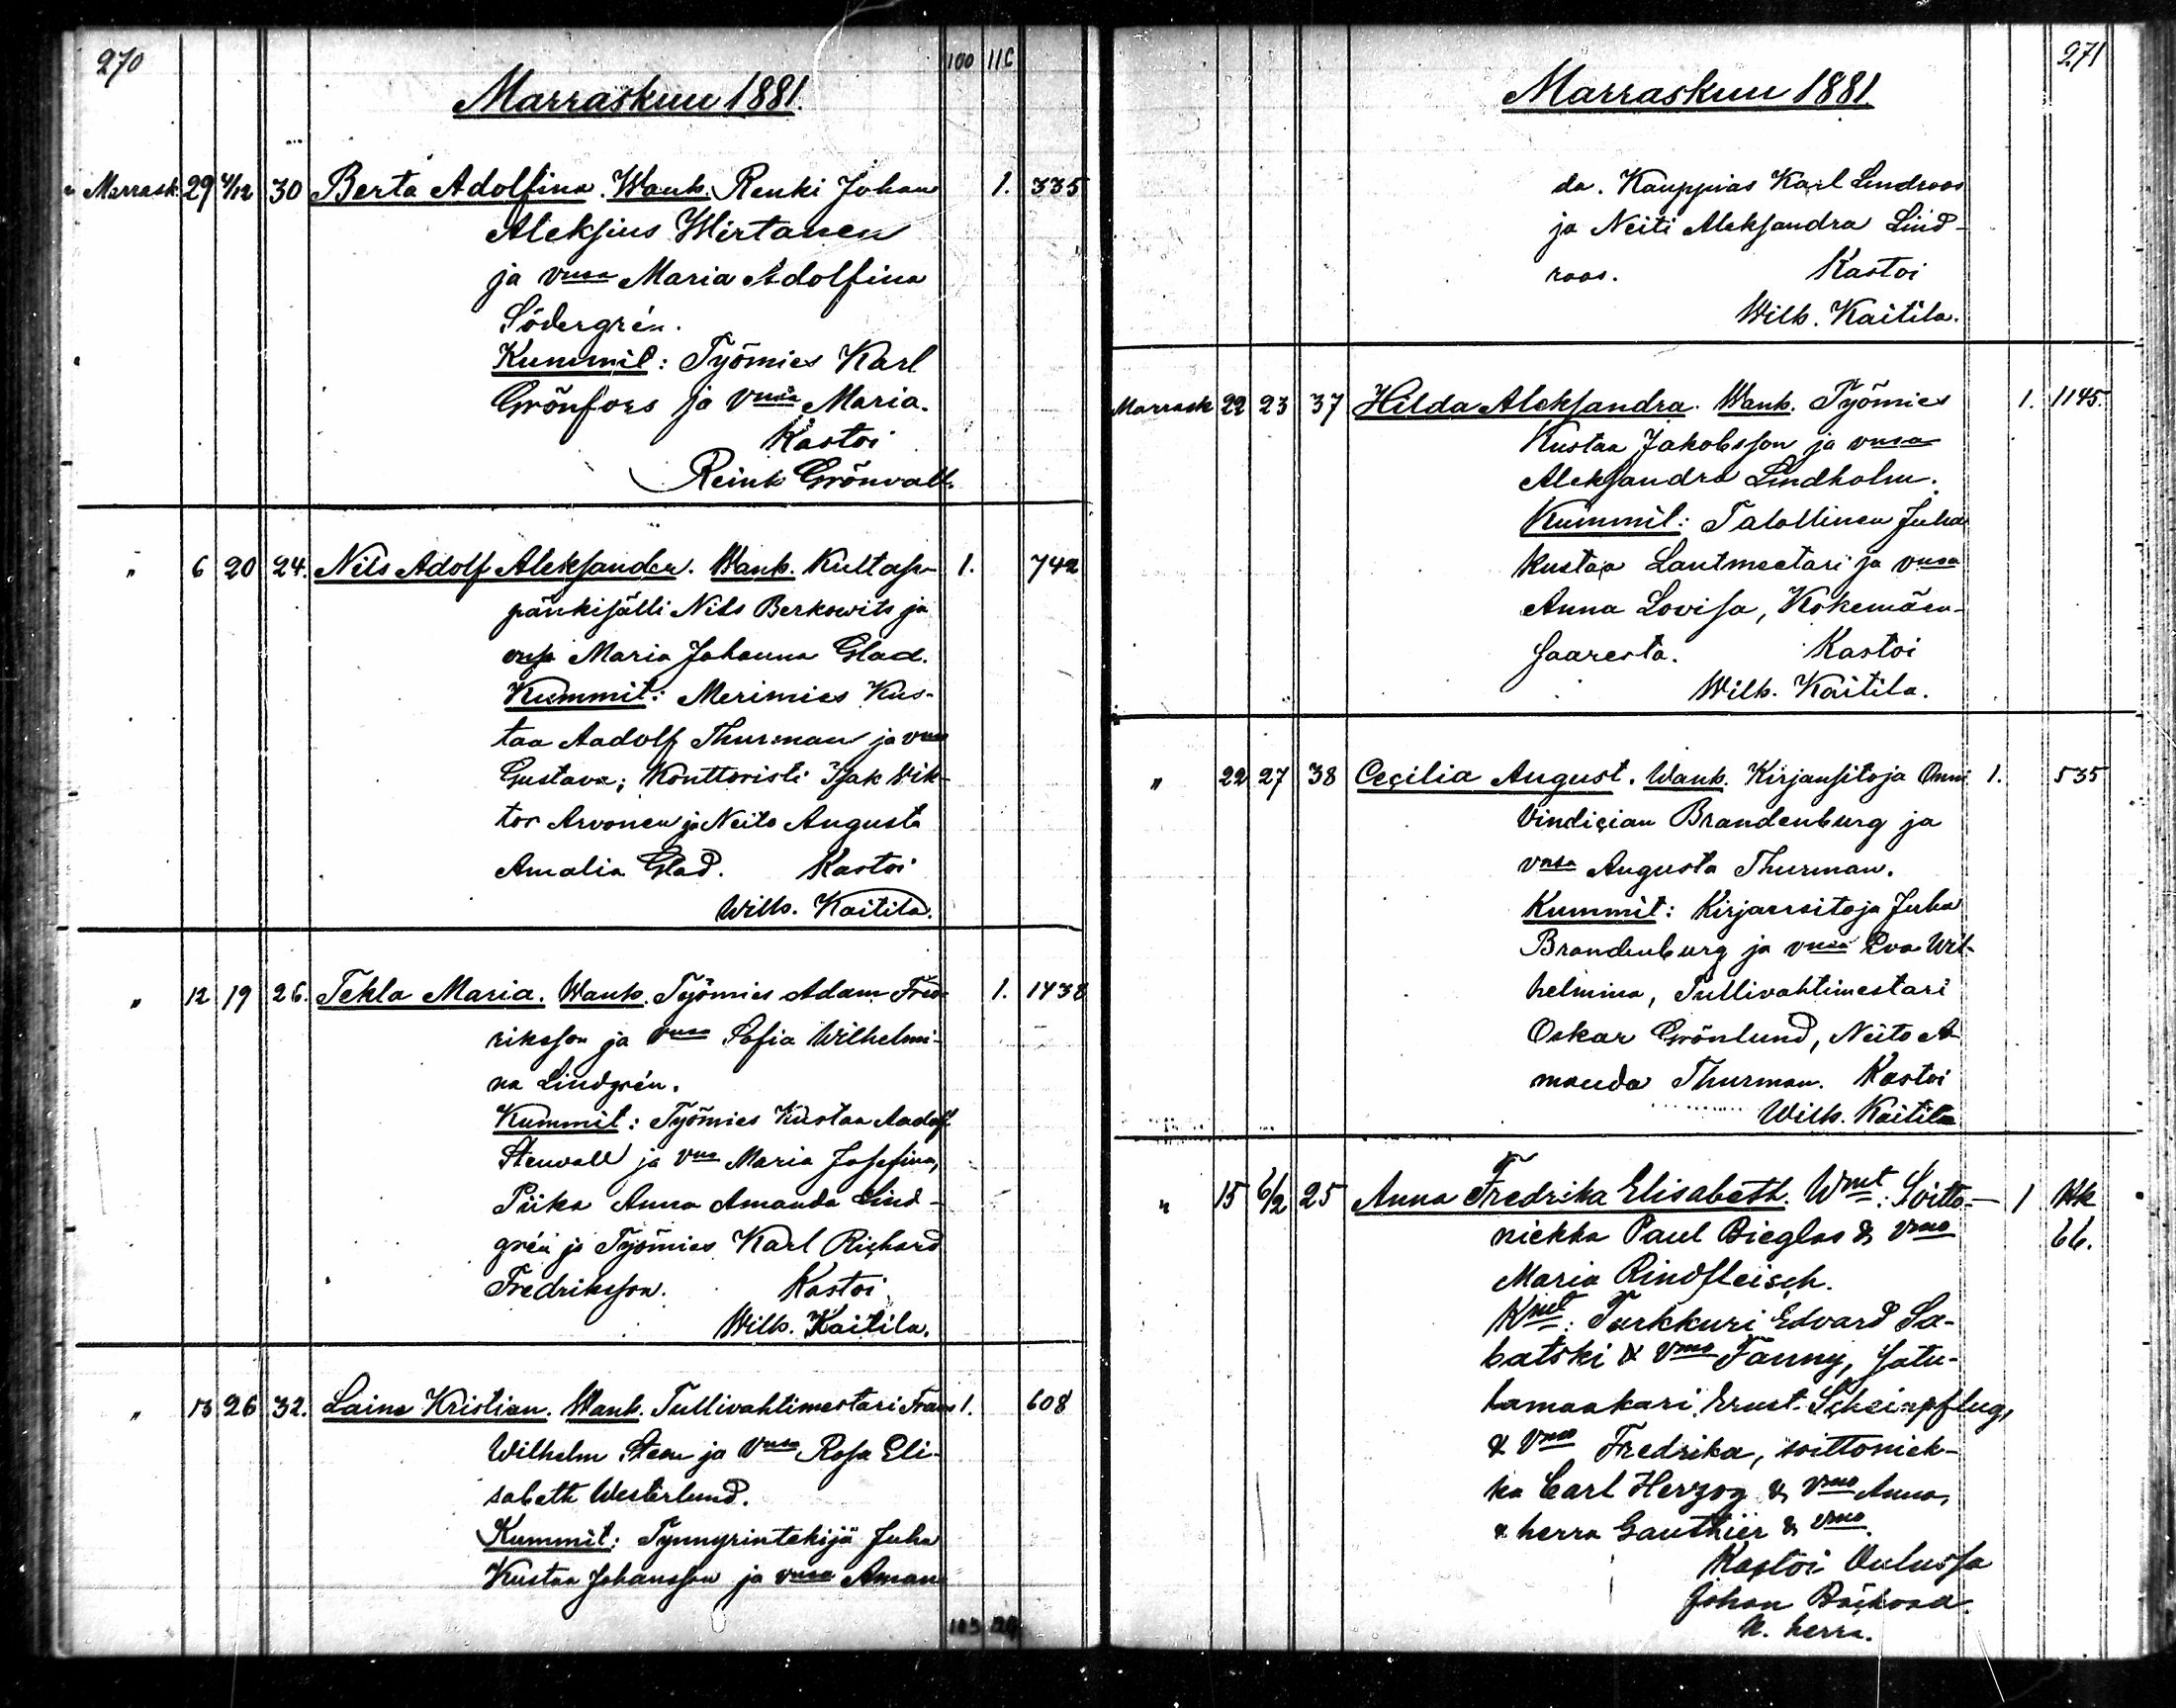 270
100 116
Marraskuu 1881.
Marrask. 29 4/12 30 Berta Adolfina. Wanh. Renki Johan 1. 335
Aleksius Wirtanen
ja vmsa Maria Adolfina
Södergrén.
Kummit: Työmies Karl
Grönfors ja vmsa Maria.
Kastoi
Reinh Grönvall.
" 6 20 24. Nils Adolf Aleksander. Wanh. Kultase- 1. 742
pänkisälli Nils Berkowits ja
vmsa Maria Johanna Glad.
Kummit: Merimies Kus-
taa Aadolf Thurman ja vmsa
Gustava; Konttoristi Isak Wik-
tor Arvonen ja Neito Augusta
Amalia Glad. Kastoi
Wilh. Kaitila.
" 12 19 26. Tekla Maria. Wanh. Työmies Adam Fred- 1. 1438
riksson ja vmsa Sofia Wilhelmi-
na Lindgrén.
Kummit: Työmies Kustaa Aadolf
Stenvall ja vmsa Maria Josefina,
Piika Anna Amanda Lind-
grén ja Työmies Karl Richard
Fredriksson. Kastoi
Wilh. Kaitila.
" 13 26 32. Laine Kristian. Wanh. Tullivahtimestari Frans 1. 608
Wilhelm Steen ja vmsa Rosa Eli-
sabeth Westerlund.
Kummit: Tynnyrintekijä Juha
Kustaa Johansson ja vmsa Aman-
271
Marraskuu 1881
da. Kauppias Karl Lindroos
ja Neiti Aleksandra Lind-
roos. Kastoi
Wilh. Kaitila.
Marrask 22 23 37 Hilda Aleksandra. Wanh. Työmies 1. 1145.
Kustaa Jakobsson ja vmsa
Aleksandra Lindholm.
Kummit: Talollinen Juha
Kustaa Lantmeetari ja vmsa
Anna Lovisa, Kokemäen-
saaresta. Kastoi
Wilh. Kaitila.
" 22 27 38 Cecilia August. Wanh. Kirjansitoja Onni 1. 535
Vindician Brandenburg ja
vmsa Augusta Thurman.
Kummit: Kirjansitoja Juha
Brandenburg ja vmsa Eva Wil-
helmina, Tullivahtimestari
Oskar Grönlund, Neito A-
manda Thurman. Kastoi
Wilh. Kaitila
" 15 6/2 25 Anna Fredrika Elisabeth. Wmt: Soitto- 1 Kk
niekka Paul Bieglas & vmo 66.
Maria Rindfleisch.
Kmt: Turkkuri Edvard Sa-
batski & vmo Fanny, Satu-
lamaakari Ernst Scheinpflug,
& vmo Fredrika, soittoniek-
ka Carl Herzog & vmo Anna,
& herra Gauthier & vmo.
Kastoi Oulussa
Johan Bäckvad.
K. herra.